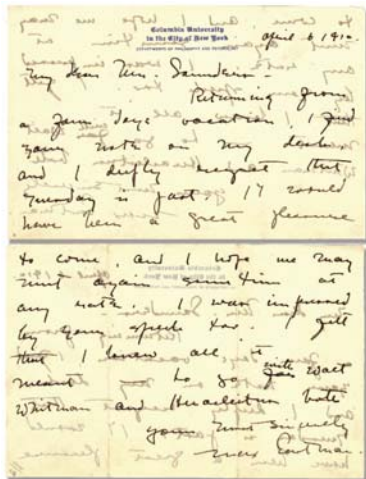 Columbia University
in the City of New York
DEPARTMENT OF PHILOSOPHY AND
April 6 1910.
My dear Mr. Saunders-
Returning from
a four days vacation, I find
your note on my desk,
and I deeply regret that
yesterday is past. It would
have been a great pleasure
to come, and I hope we may
meet again sometime at
any rate. I was impressed
by your speech too. I felt
that I knew all it
meant to go with Walt
Whitman and Heraclitus both
yours most sincerely
Max Eastman.